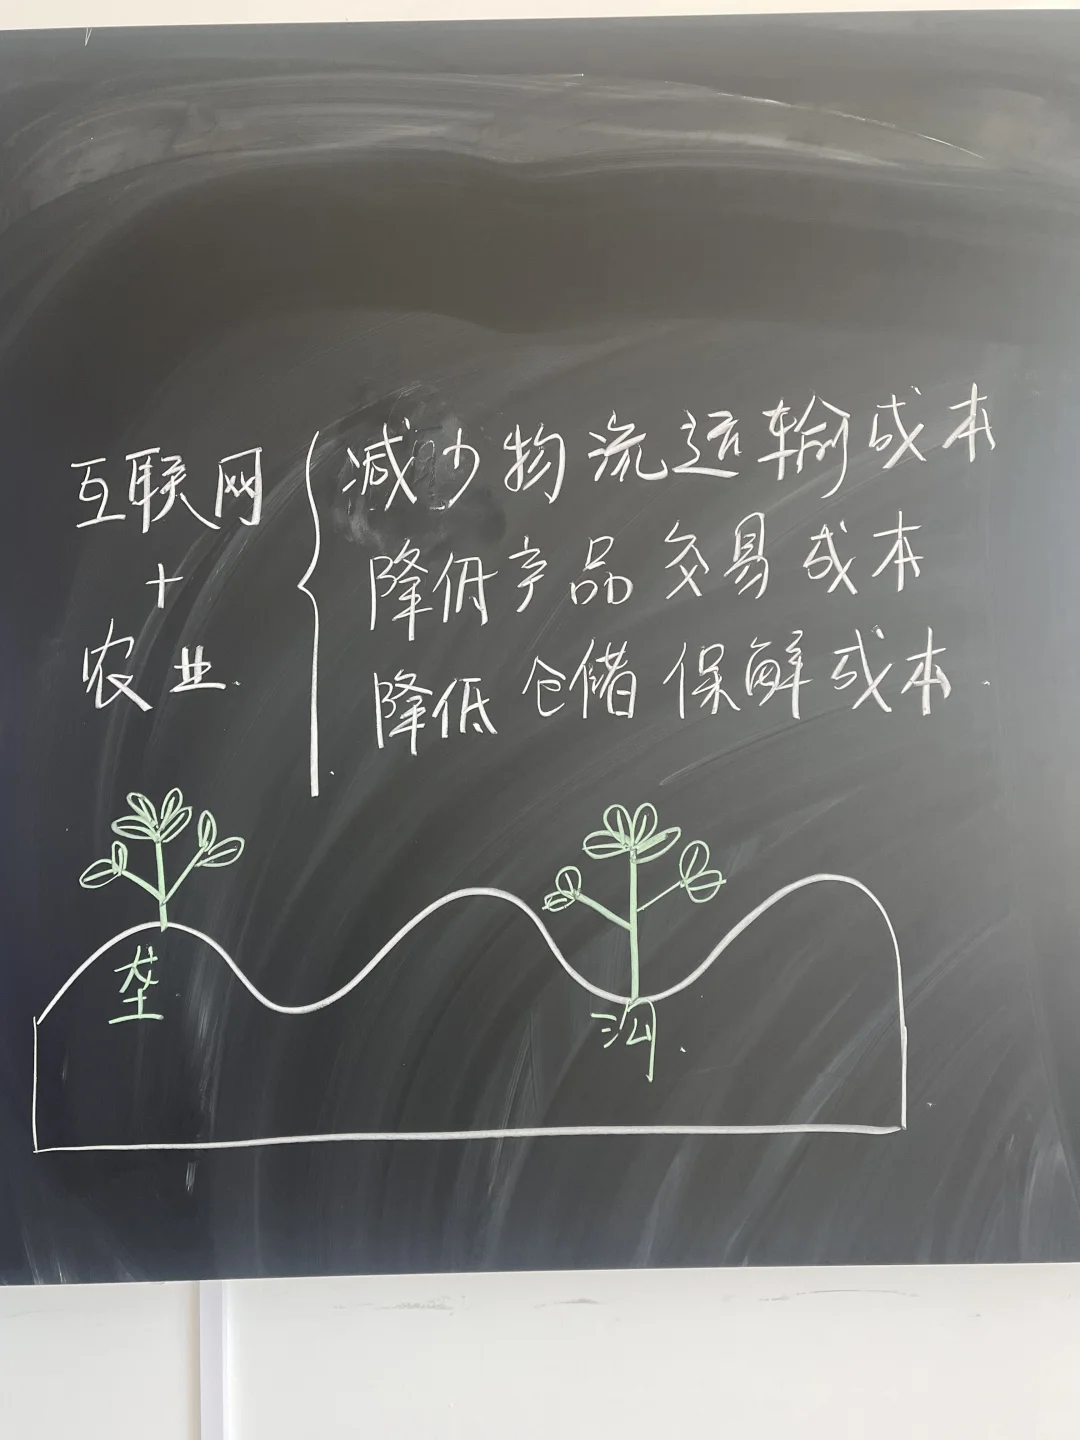 互联网
+
农业.
减少物流运输成本
降低产品交易成本
降低仓储保鲜成本.
垄
沟.